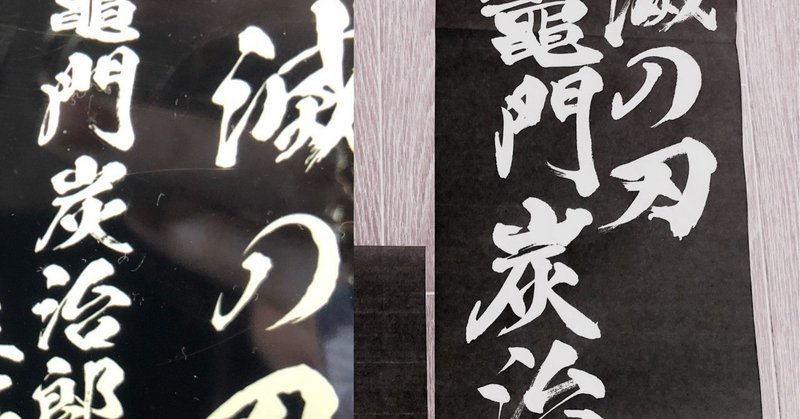 滅の刃
竈門炭治郎
滅の刃
竈門炭治